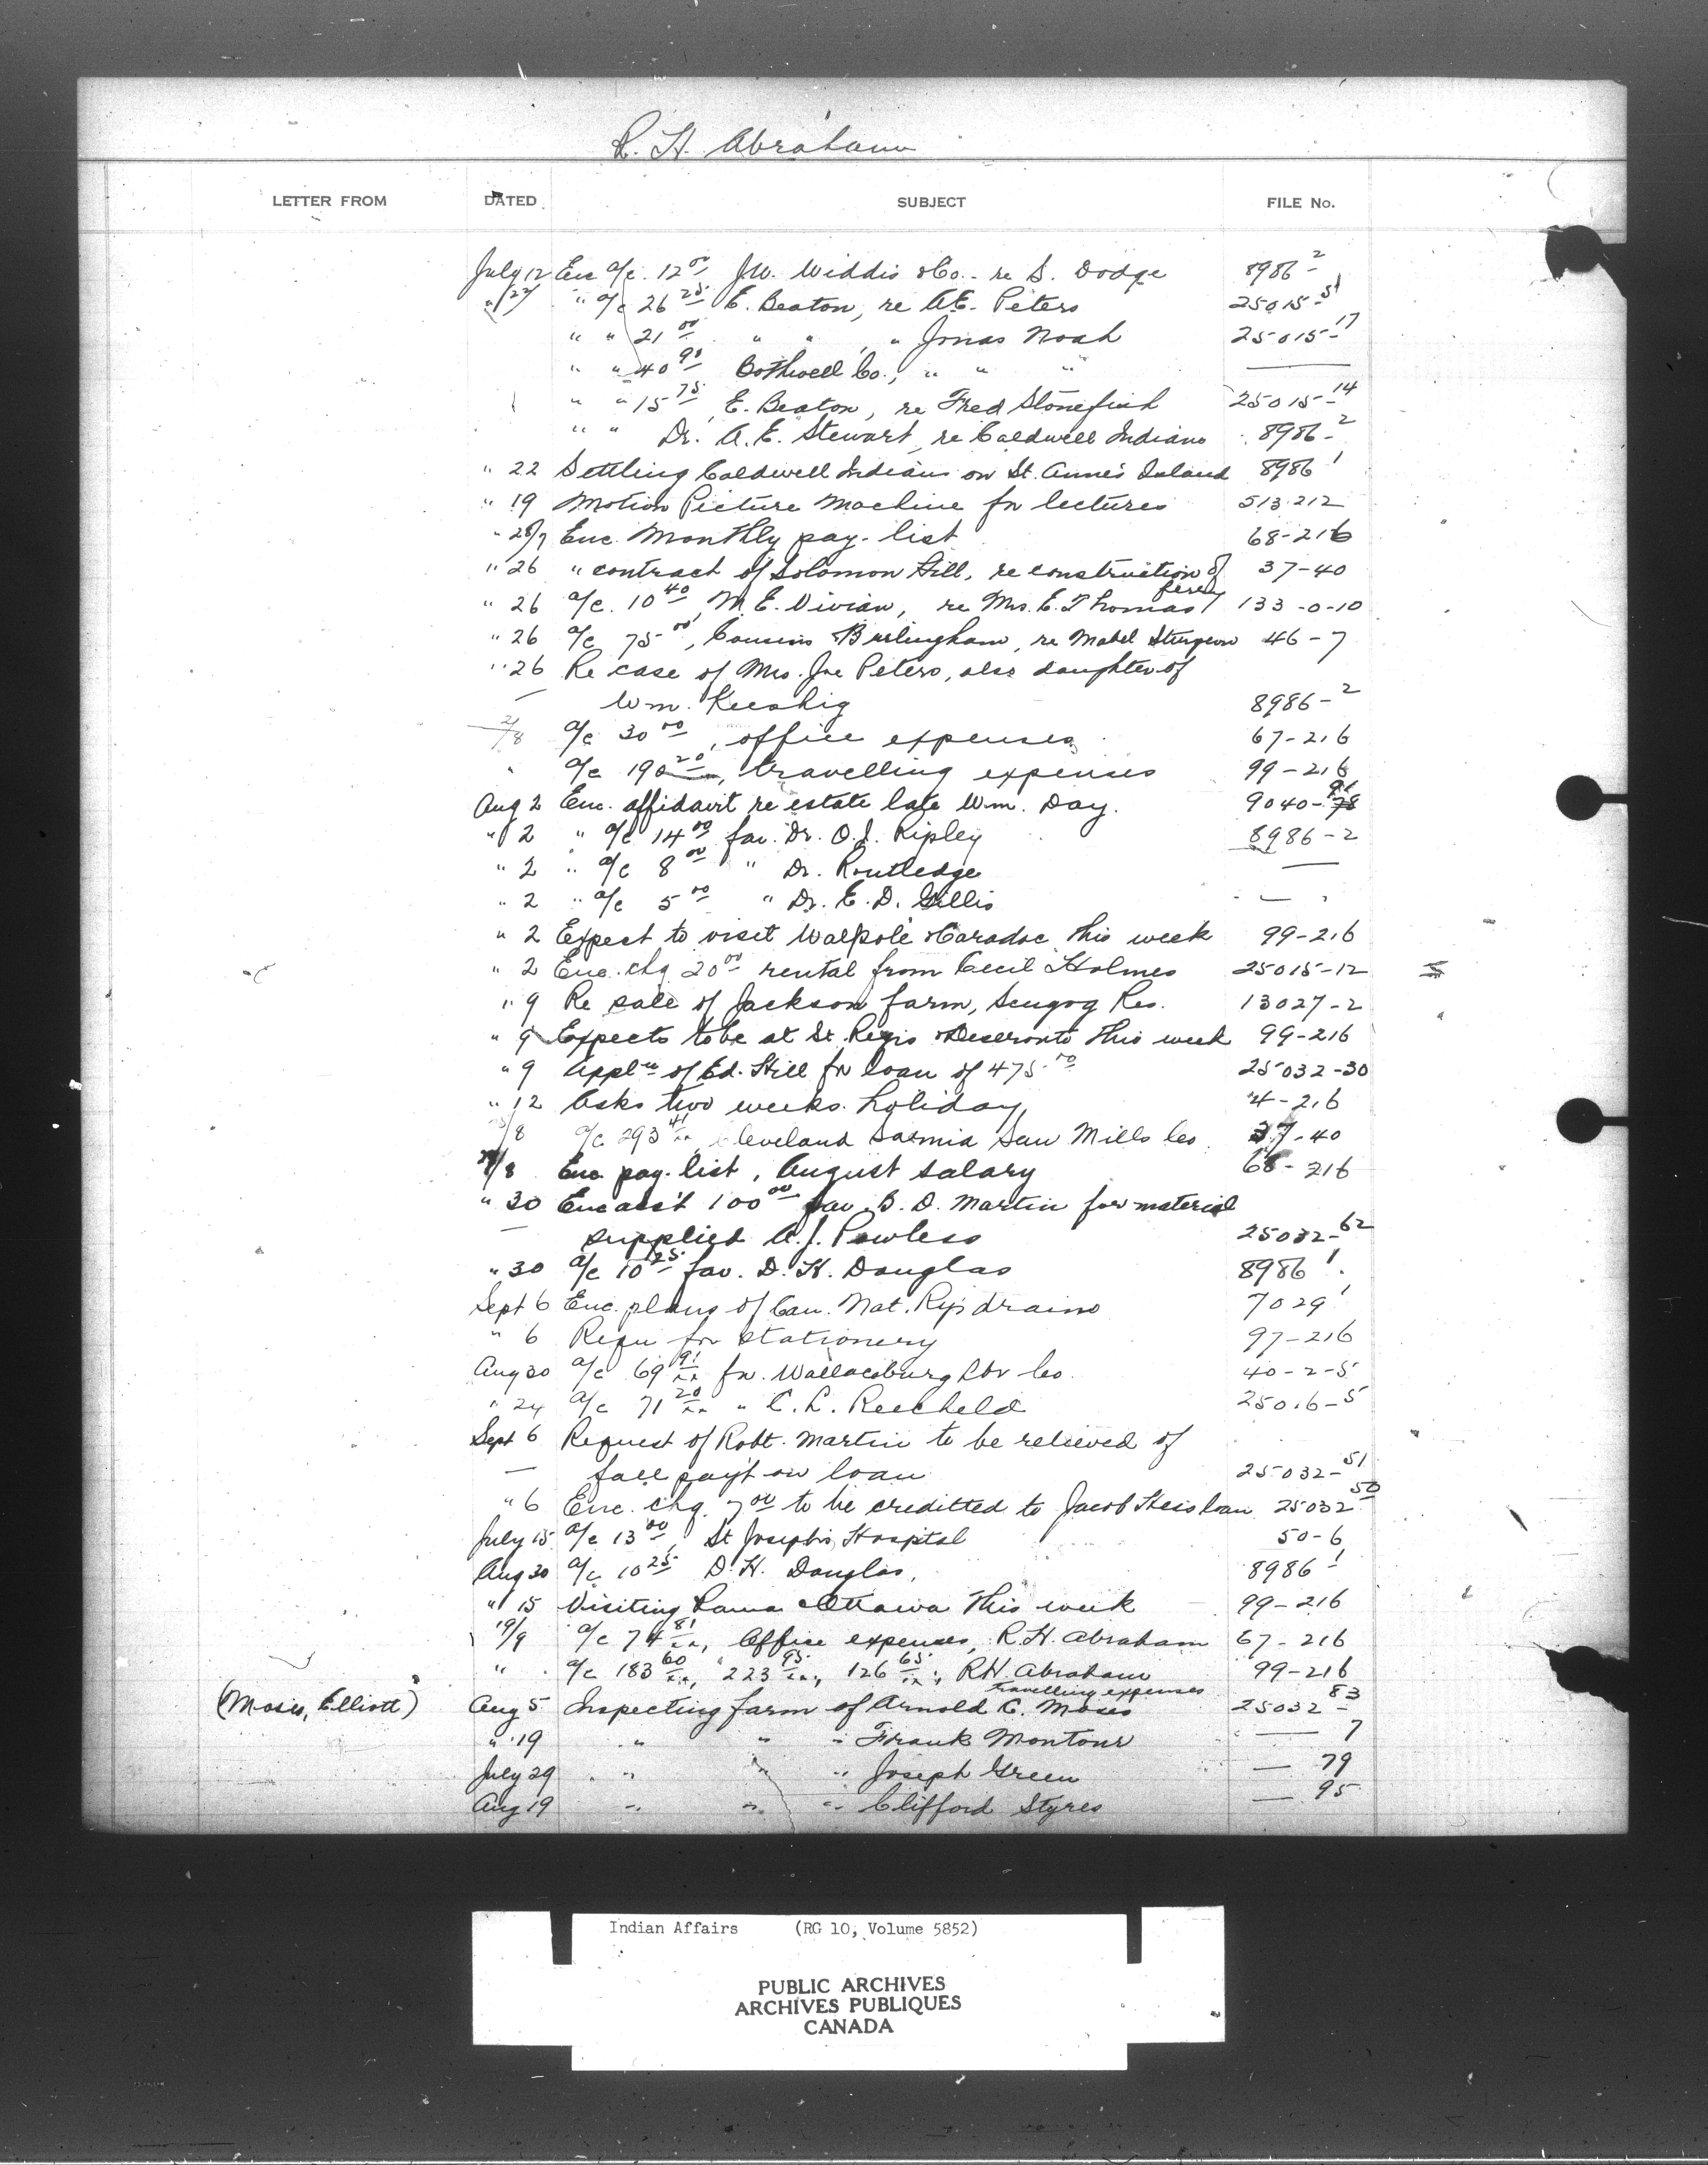 R. H. Abraham
LETTER FROM DATED SUBJECT FILE No.
July 12 Enc a/c. 12 00 J.W. Widdis & Co. - re S. Dodge 8986-2
" 22/7 " a/c 26 25 E. Beaton, re A.E. Peters 25015-51
" " 21 00 " " , " Jonas Noah 25015-17
" " 40 90 Bothwell Co., " " " —
" " 15 75 E. Beaton, re Fred Stonefish 25015-14
" " Dr. A. E. Stewart, re Caldwell Indians 8986-2
" 22 Settling Caldwell Indians on St. Anne's Island 8986 1
" 19 Motion Picture Machine for lectures 513-212
" 28/7 Enc. Monthly pay-list 68-216
" 26 " contract of Solomon Hill, re construction of 37-40
fence
" 26 a/c. 10 40, M. E. Vivian, re Mrs. E. Thomas 133-0-10
" 26 a/c 75 00, Cousins Burlingham, re Mabel Sturgeon 46-7
" 26 Re case of Mrs. Joe Peters, also daughter of
— Wm. Keeshig 8986-2
2/8 a/c 30 00, office expenses 67-216
" a/c 190 20, travelling expenses 99-216
Aug 2 Enc. affidavit re estate late Wm. Day. 9040-91
" 2 " a/c 14 00 fav. Dr. O. J. Ripley 8986-2
" 2 " a/c 8 00 " Dr. Routledge —
" 2 " a/c 5 00 " Dr. E. D. Gillis —
" 2 Expect to visit Walpole & Caradoc this week 99-216
" 2 Enc. chq. 20 00 rental from Cecil Holmes 25015-12
" 9 Re sale of Jackson farm, Scugog Res. 13027-2
" 9 Expects to be at St. Regis & Deseronto this week 99-216
" 9 Appl'n of Ed. Hill for loan of 475.00 25032-30
" 12 Asks two weeks holiday 4-216
/8 a/c 293 41/xx Cleveland Sarnia Saw Mills Co. 37-40
/8 Enc pay-list, August salary 68-216
" 30 Enc acc't 100 00 fav. B. D. Martin for material
— supplied A. J. Powless 25032-62
" 30 a/c 10 25 fav. D. H. Douglas 8986 1.
Sept 6 Enc. plans of Can. Nat. Ry's drains 7029 1
" 6 Requ for stationery 97-216
Aug 30 a/c 69 91/xx fav. Wallaceburg Lbr Co. 40-2-5
" 24 a/c 71 20/xx " C. L. 25016-5
Sept 6 Request of Robt. Martin to be relieved of
— fall pay't on loan 25032-51
" 6 Enc. chq. 7 00 to be creditted to Jacob Hess loan 25032-50
July 15 a/c 13 00, St Joseph's Hospital 50-6
Aug 30 a/c 10 25 D. H. Douglas, 8986-1
" 15 Visiting Rama & Ottawa this week 99-216
19/9 a/c 74 81/xx, Office expenses, R. H. Abraham 67-216
" a/c 183 60/xx, 223 95/xx, 126 65/xx, R H Abraham 99-216
travelling expenses
(Moses, Elliott) Aug 5 Inspecting farm of Arnold C. Moses 25032-83
" 19 " " " Frank Montour — 7
July 29 " " " Joseph Green — 79
Aug 19 " " " Clifford Styres — 95
Indian Affairs (RG 10, Volume 5852)
PUBLIC ARCHIVES
ARCHIVES PUBLIQUES
CANADA